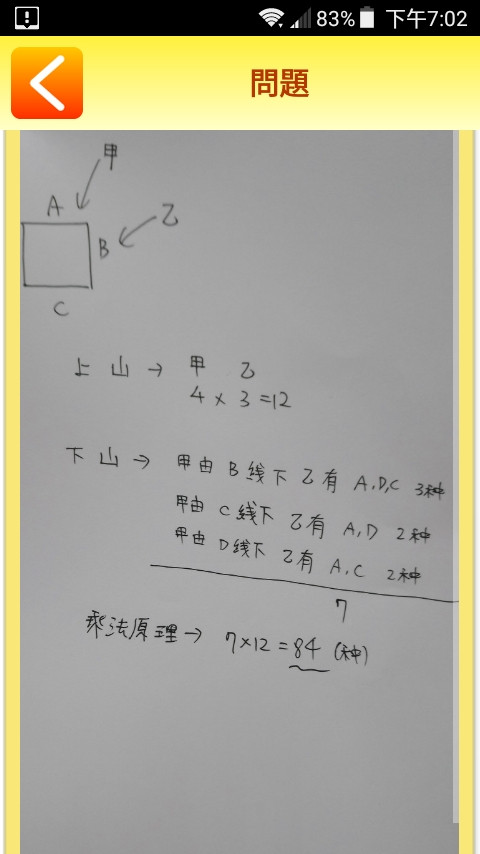 83% 下午7:02
問題
甲
A
乙
B
C
上山 → 甲 乙
4 × 3 = 12
下山 → 甲由 B 线下 乙有 A,D,C 3种
甲由 C 线下 乙有 A,D 2种
甲由 D 线下 乙有 A,C 2种
7
乘法原理 → 7×12 = 84 (种)